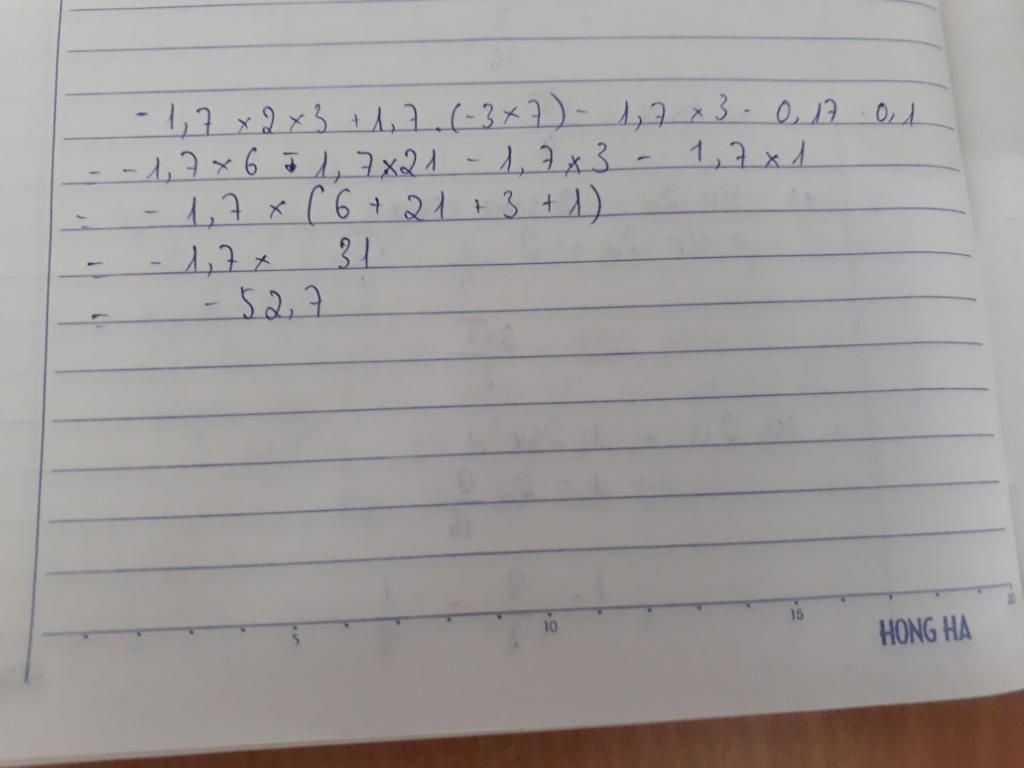 - 1,7 × 2 × 3 + 1,7 . (-3 × 7) - 1,7 × 3 - 0,17 . 0,1
= -1,7 × 6 - 1,7 × 21 - 1,7 × 3 - 1,7 × 1
= - 1,7 × (6 + 21 + 3 + 1)
= - 1,7 × 31
= - 52,7
5 10 15 20
HONG HA